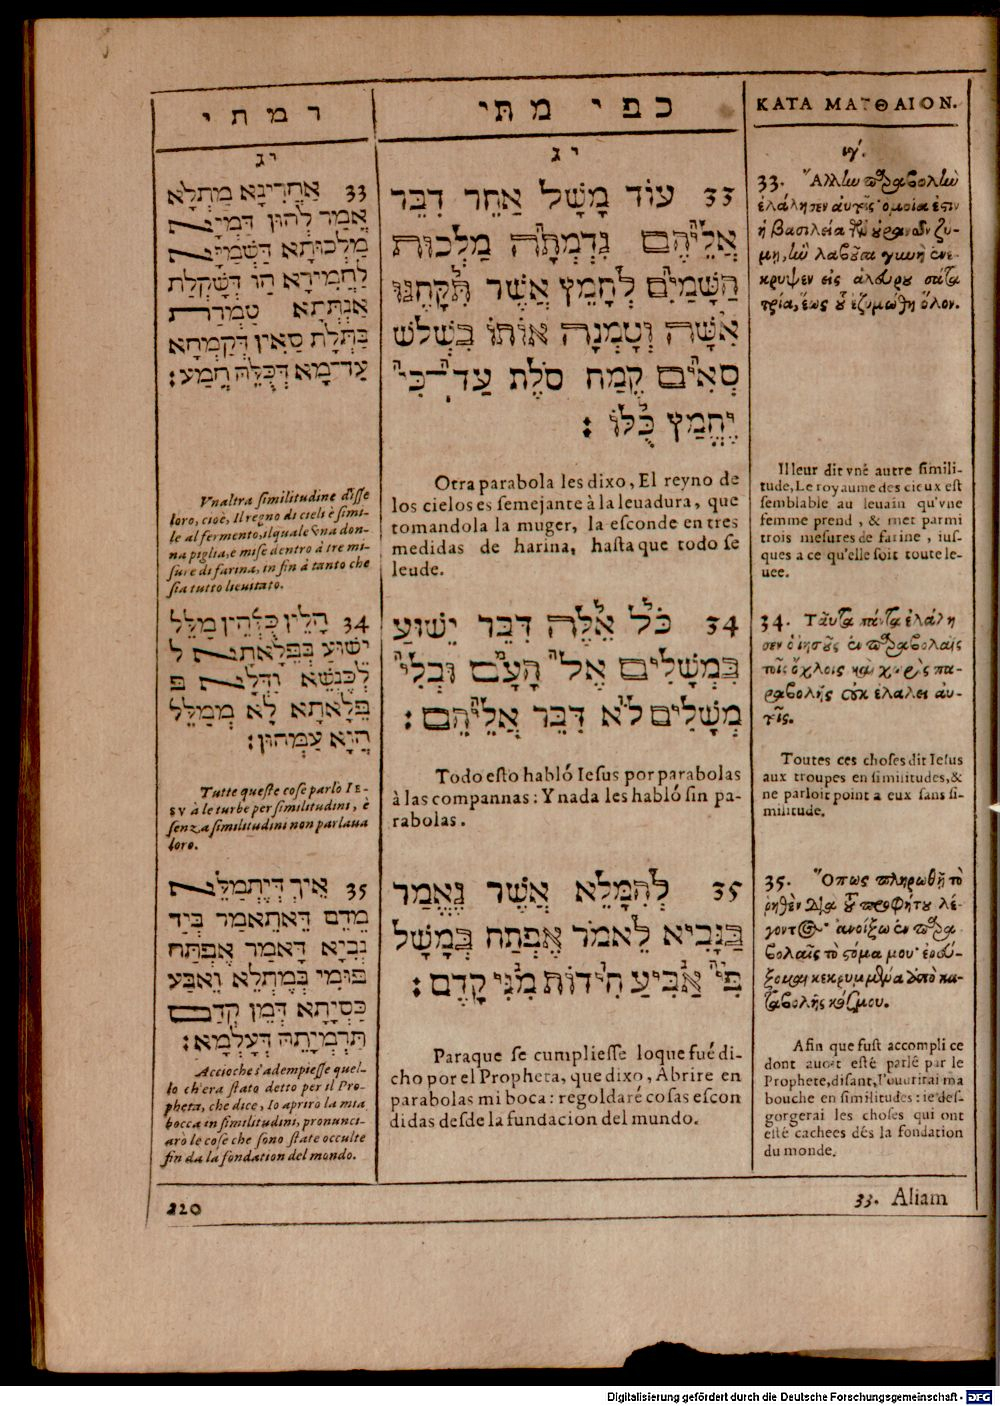 דמתי
יג
33 אַחֲרִינָא מַתְלָא
אֲמַר לְהוּן דַּמְיָא
מַלְכוּתָא דַּשְׁמַיָּא
לַחֲמִירָא הַו דְּשָׁקְלַת
אַנְתְּתָא טַמְרַת
בַּתְלָת סַאִין דְּקַמְחָא
עַד־מָא דְּכֻלֵּהּ חֲמַע׃
Vnaltra similitudine disse
loro, cioè, Il regno di cieli è simi-
le al fermento, il quale una don-
na piglia, e mise dentro à tre mi-
sure di farina, in fin à tanto che
sia tutto lievitato.
34 הָלֵין כֻּלְּהֵין מַלֵּל
יֵשׁוּעַ בְּפֵלָאתָא ל
לְכֶנְשֵׁא וּדְלָא פ
פֵּלָאתָא לָא מְמַלֵּל
הֲוָא עַמְּהוּן׃
Tutte queste cose parlò IE-
SV à le turbe per similitudini, è
senza similitudini non parlaua
loro.
35 אֵיךְ דְּיִתְמַלֵּא
מִדֵּם דֵּאתֵאמַר בְּיַד
נְבִיָּא דָּאמַר אֶפְתַּח
פּוּמִי בְּמַתְלֵא וְאַבַּע
כַּסְיָתָא דְּמֵן קְדָם
תַּרְמְיָתֵהּ דְּעָלְמָא׃
Accioche s'adempiesse quel-
lo ch'era stato detto per il Pro-
pheta, che dice, Io aprirò la mia
bocca in similitudini, pronunci-
arò le cose che sono state occulte
fin da la fondation del mondo.
כפי מתי
יג
33 עוֹד מָשָׁל אַחֵר דִּבֵּר
אֲלֵיהֶם נִדְמְתָה מַלְכוּת
הַשָּׁמַיִם לְחָמֵץ אֲשֶׁר תִּקָּחֶנּוּ
אִשָּׁה וְטָמְנָה אוֹתוֹ בִּשְׁלֹשׁ
סְאִים קֶמַח סֹלֶת עַד־כִּי
יֶחֱמַץ כֻּלּוֹ׃
Otra parabola les dixo, El reyno de
los cielos es semejante à la leuadura, que
tomandola la muger, la esconde en tres
medidas de harina, hasta que todo se
leude.
34 כֹּל אֵלֶּה דִּבֵּר יֵשׁוּעַ
בִּמְשָׁלִים אֶל הָעָם וּבְלִי
מְשָׁלִים לֹא דִּבֵּר אֲלֵיהֶם׃
Todo esto habló Iesus por parabolas
à las compannas: Y nada les habló sin pa-
rabolas.
35 לְהִמָּלֵא אֲשֶׁר נֶאֱמַר
בַּנָּבִיא לֵאמֹר אֶפְתַּח בְּמָשָׁל
פִּי אַבִּיעַ חִידוֹת מִנִּי קֶדֶם׃
Paraque se cumpliesse loque fué di-
cho por el Propheta, que dixo, Abrire en
parabolas mi boca: regoldaré cosas escon
didas desde la fundacion del mundo.
ΚΑΤΑ ΜΑΤΘΑΙΟΝ.
ιγʹ.
33. Ἄλλην παραβολὴν
ἐλάλησεν αὐτοῖς· ὁμοία ἐστὶν
ἡ βασιλεία τῶν οὐρανῶν ζύ-
μῃ, ἣν λαβοῦσα γυνὴ ἐνέ-
κρυψεν εἰς ἀλεύρου σάτα
τρία, ἕως οὗ ἐζυμώθη ὅλον.
Il leur dit vné autre simili-
tude, Le royaume des cieux est
semblable au leuain qu'vne
femme prend, & met parmi
trois mesures de farine, ius-
ques a ce qu'elle soit toute le-
uee.
34. Ταῦτα πάντα ἐλάλη
σεν ὁ ἰησοῦς ἐν παραβολαῖς
τοῖς ὄχλοις καὶ χωρὶς πα-
ραβολῆς οὐκ ἐλάλει αὐ-
τοῖς.
Toutes ces choses dit Iesus
aux troupes en similitudes, &
ne parloit point a eux sans si-
militude.
35. Ὅπως πληρωθῇ τὸ
ῥηθὲν διὰ τοῦ προφήτου λέ-
γοντος· ἀνοίξω ἐν παρα
βολαῖς τὸ στόμα μου· ἐρεύ-
ξομαι κεκρυμμένα ἀπὸ κα-
ταβολῆς κόσμου.
Afin que fust accompli ce
dont auoit esté parlé par le
Prophete, disant, I'ouurirai ma
bouche en similitudes: ie des-
gorgerai les choses qui ont
esté cachees dés la fondation
du monde.
220
33. Aliam
Digitalisierung gefördert durch die Deutsche Forschungsgemeinschaft - DFG